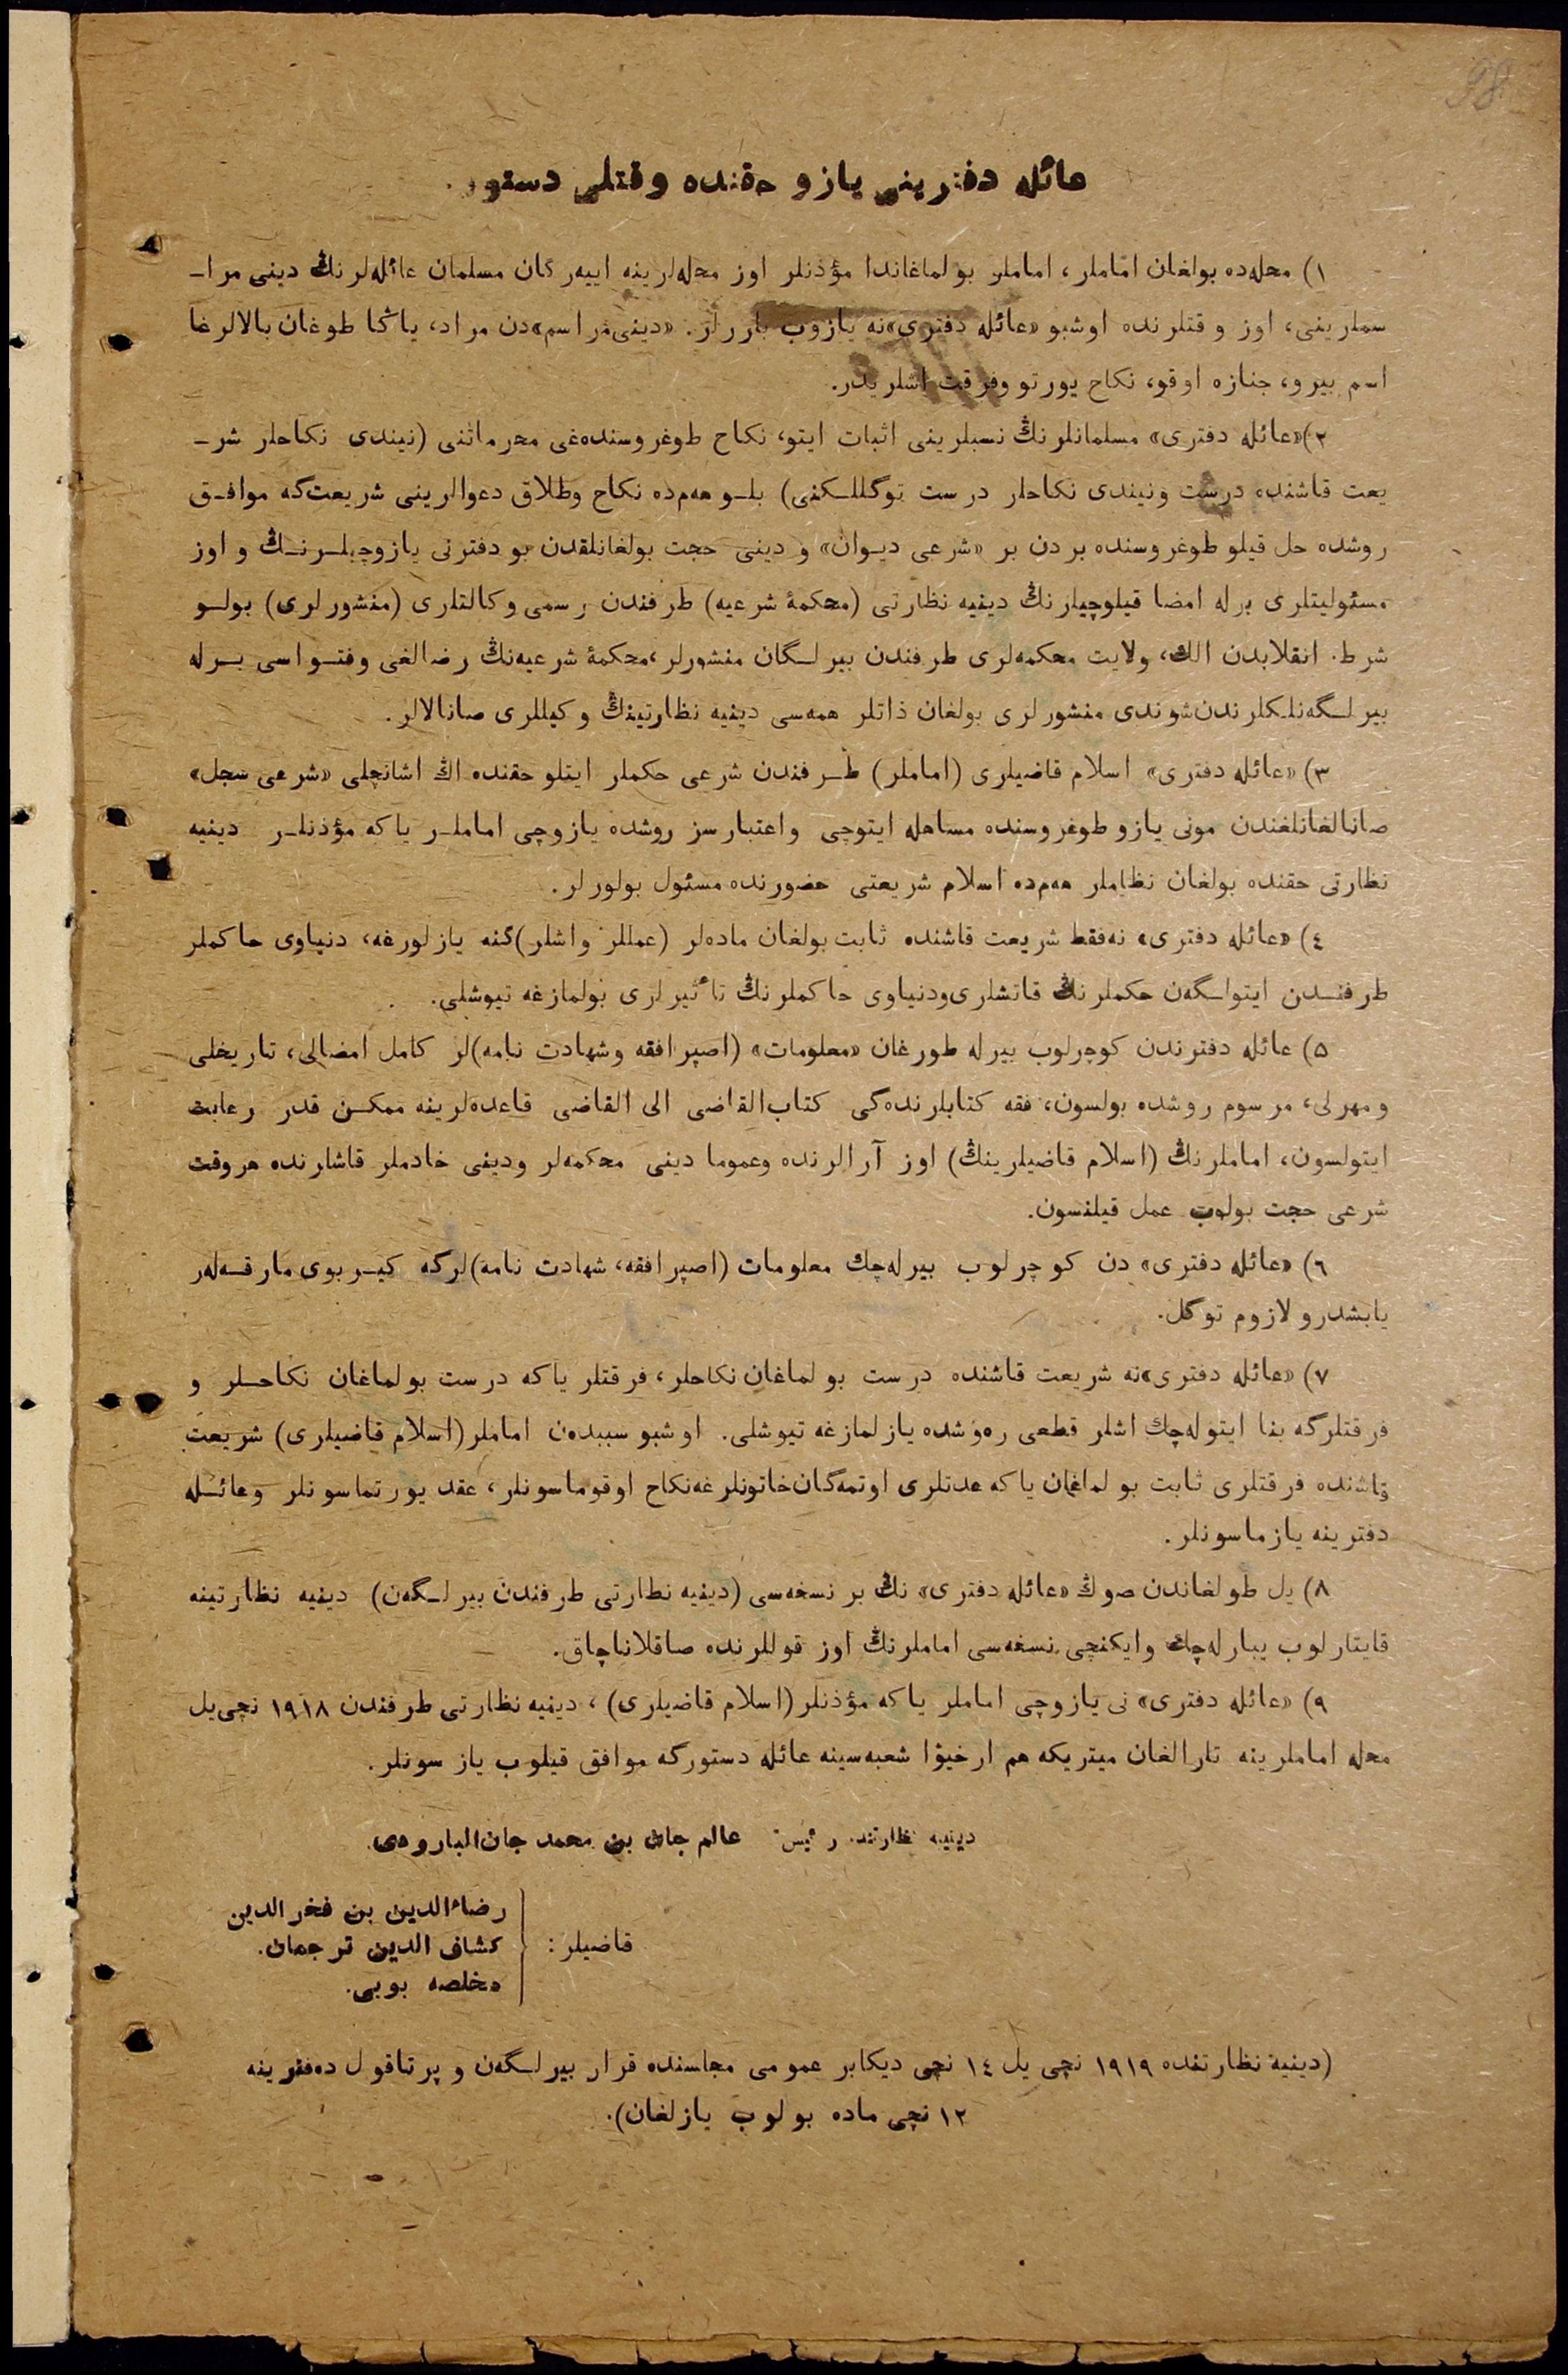 98
عائله دفترینی یازو حقنده وقتلی دستور.
١) محله‌ده بولغان اماملر، اماملر بولماغاندا مؤذنلر اوز محله‌لرینه اییه‌رگان مسلمان عائله‌لرنڭ دینی مرا-
سملرینی، اوز وقتلرنده اوشبو «عائله دفتری»نه یازوب باررلر. «دینی مراسم»دن مراد، یاڭا طوغان بالالرغا
اسم بیرو، جنازه اوقو، نکاح یورتو وفرقت اشلریدر.
٢) «عائله دفتری» مسلمانلرنڭ نسبلرینی اثبات ایتو، نکاح طوغروسنده‌غی محرماتنی (نیندی نکاحلر شر-
یعت قاشنده درست ونیندی نکاحلر درست توگللـکنی) بلـو هم‌ده نکاح وطلاق دعوالرینی شریعت‌که موافـق
روشده حل قیلو طوغروسنده بردن بر «شرعی دیـوان» و دینی حجت بولغانلقدن بو دفترنی یازوچیلـرنـڭ و اوز
مسئولیتلری برله امضا قیلوچیلرنڭ دینیه نظارتی (محکمهٔ شرعیه) طرفندن رسمی وکالتلری (منشورلری) بولـو
شرط. انقلابدن الك، ولایت محکمه‌لری طرفندن بیرلـگان منشورلر، محکمهٔ شرعیه‌نڭ رضالغی وفتـواسی بـرله
بیرلـگه‌نلکلرندن شوندی منشورلری بولغان ذاتلر همه‌سی دینیه نظارتینڭ وکیللری صانالالر.
٣) «عائله دفتری» اسلام قاضیلری (اماملر) طـرفندن شرعی حکملر ایتلو حقنده اڭ اشانچلی «شرعی سجل»
صانالغانلغندن مونی یازو طوغروسنده مساهله ایتوچی واعتبارسز روشده یازوچی اماملـر یاکه مؤذنلـر دینیه
نظارتی حقنده بولغان نظاملر هم‌ده اسلام شریعتی حضورنده مسئول بولورلر.
٤) «عائله دفتری» نه‌فقط شریعت قاشنده ثابت بولغان ماده‌لر (عمللر واشلر)گنه یازلورغه، دنیاوی حاکملر
طرفنـدن ایتولـگه‌ن حکملرنڭ قاتشلری‌ودنیاوی حاکملرنڭ تاٴثیرلری بولمازغه تیوشلی.
٥) عائله دفترندن کوچرلوب بیرله طورغان «معلومات» (اصپرافقه وشهادت نامه)لر کامل امضالی، تاریخلی
ومهرلی، مرسوم روشده بولسون، فقه کتابلرنده‌گی کتاب‌القاضی الی القاضی قاعده‌لرینه ممکـن قدر رعایت
ایتولسون، اماملرنڭ (اسلام قاضیلرینڭ) اوز آرالرنده وعموما دینی محکمه‌لر ودینی خادملر قاشلرنده هروقت
شرعی حجت بولوب عمل قیلنسون.
٦) «عائله دفتری» دن کوچرلوب بیرله‌چك معلومات (اصپرافقه، شهادت نامه)لرگه کیـربوی مارقـه‌لر
یابشدرو لازوم توگل.
٧) «عائله دفتری»نه شریعت قاشنده درست بولماغان نکاحلر، فرقتلر یاکه درست بولماغان نکاحـلر و
فرقتلرگه بنا ایتوله‌چك اشلر قطعی ره‌وشده یازلمازغه تیوشلی. اوشبو سببدن اماملر (اسلام قاضیلری) شریعت
قاشنده فرقتلری ثابت بولماغان یاکه عدتلری اوتمه‌گان خاتونلرغه نکاح اوقوماسونلر، عقد یورتماسونلر وعائـله
دفترینه یازماسونلر.
٨) یل طولغاندن صوڭ «عائله دفتری» نڭ بر نسخه‌سی (دینیه نظارتی طرفندن بیرلـگه‌ن) دینیه نظارتینه
قایتارلوب یبارله‌چك وایکنچی نسخه‌سی اماملرنڭ اوز قوللرنده صاقلاناچاق.
٩) «عائله دفتری» نی یازوچی اماملر یاکه مؤذنلر (اسلام قاضیلری)، دینیه نظارتی طرفندن ١٩١٨ نچی یل
محله اماملرینه تارالغان میتریکه هم ارخیؤا شعبه‌سینه عائله دستورگه موافق قیلوب یازسونلر.
دینیه نظارتنده رئیس: عالم جان بن محمد جان‌البارودی.
قاضیلر:
رضاءالدین بن فخرالدین
کشاف الدین ترجمان.
مخلصه بوبی.
(دینیة نظارتنده ١٩١٩ نچی یل ١٤ نچی دیکابر عمومی مجلسنده قرار بیرلـگه‌ن و پرتاقول ده‌فترینه
١٢ نچی ماده بولوب یازلغان).